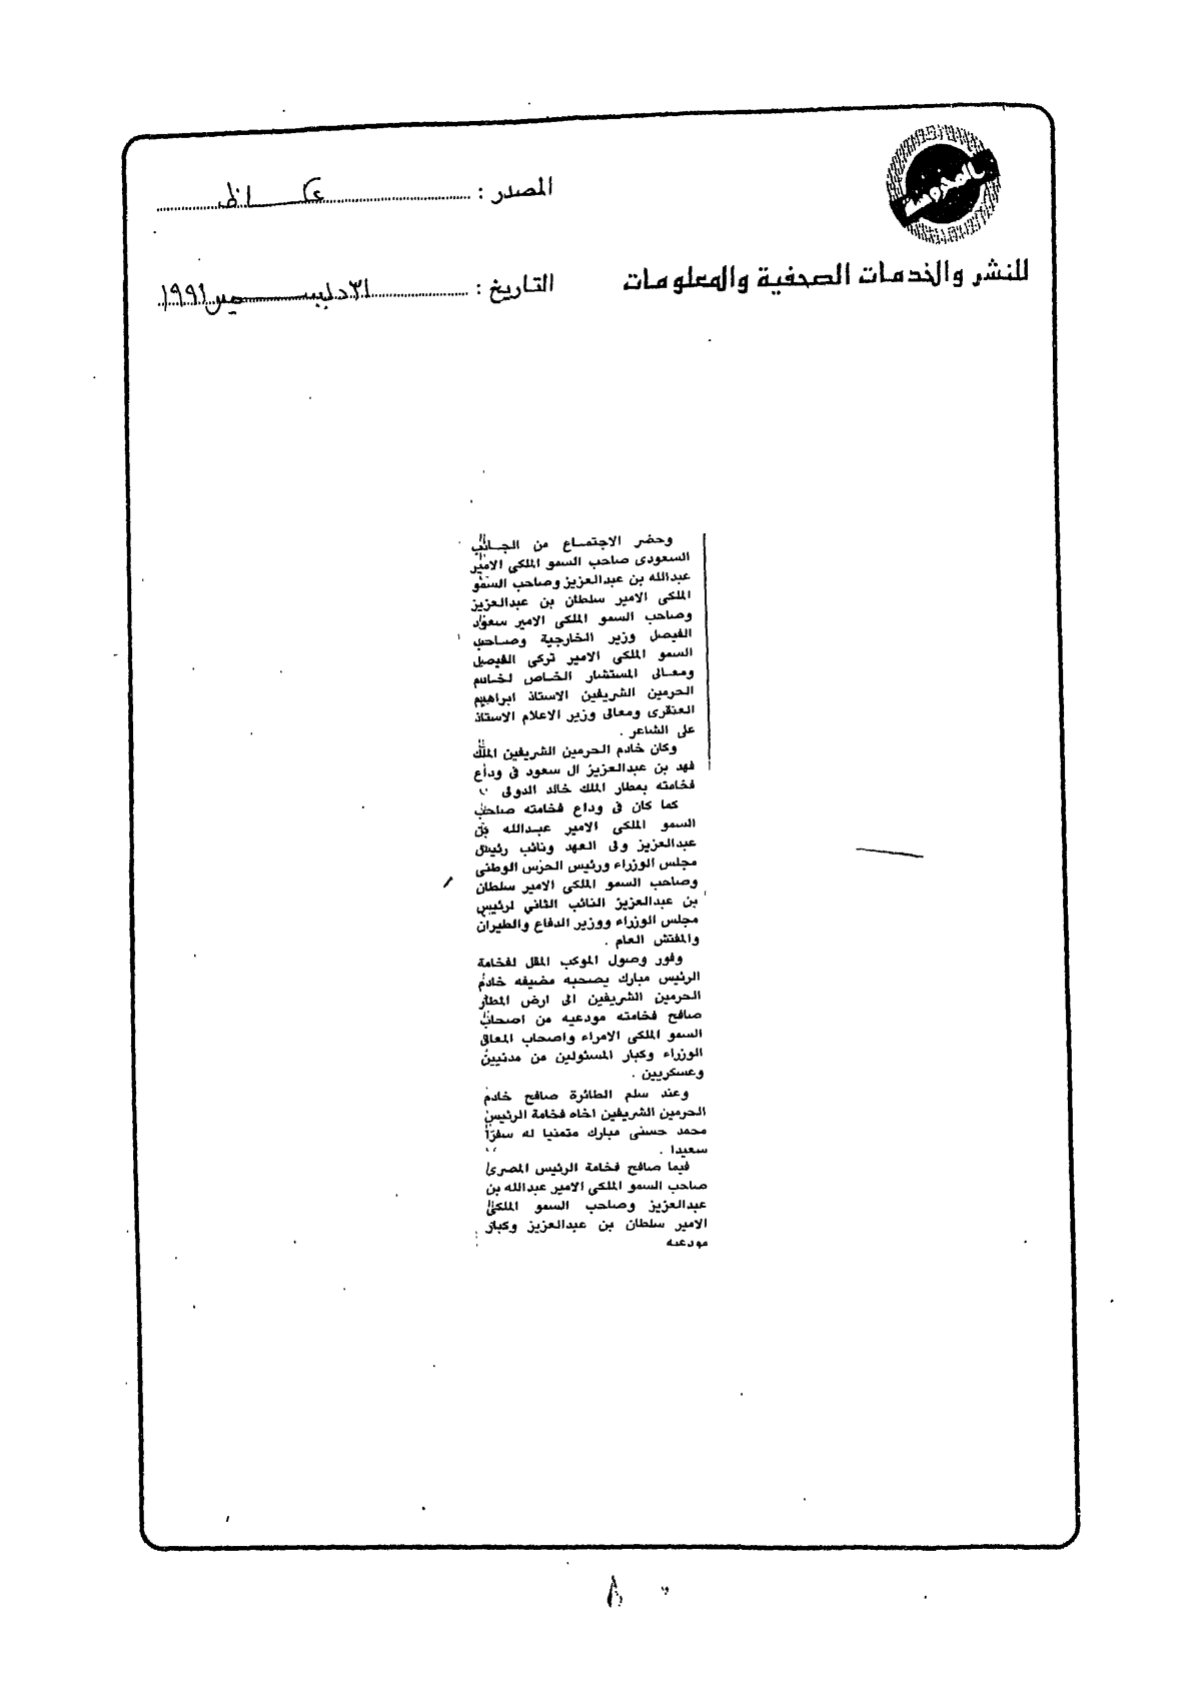 المحروسة
المصدر : عكاظ
للنشر والخدمات الصحفية والمعلومات
التاريخ : ٣١ ديسمبر ١٩٩١
وحضر الاجتماع من الجانب
السعودى صاحب السمو الملكى الامير
عبدالله بن عبدالعزيز وصاحب السمو
الملكى الامير سلطان بن عبدالعزيز
وصاحب السمو الملكى الامير سعود
الفيصل وزير الخارجية وصاحب
السمو الملكى الامير تركى الفيصل
ومعالى المستشار الخاص لخادم
الحرمين الشريفين الاستاذ ابراهيم
العنقرى ومعالى وزير الاعلام الاستاذ
على الشاعر .
وكان خادم الحرمين الشريفين الملك
فهد بن عبدالعزيز ال سعود فى وداع
فخامته بمطار الملك خالد الدولى
كما كان فى وداع فخامته صاحب
السمو الملكى الامير عبدالله بن
عبدالعزيز ولى العهد ونائب رئيس
مجلس الوزراء ورئيس الحرس الوطنى
وصاحب السمو الملكى الامير سلطان
بن عبدالعزيز النائب الثاني لرئيس
مجلس الوزراء ووزير الدفاع والطيران
والمفتش العام .
وفور وصول الموكب المقل لفخامة
الرئيس مبارك يصحبه مضيفه خادم
الحرمين الشريفين الى ارض المطار
صافح فخامته مودعيه من اصحاب
السمو الملكى الامراء واصحاب المعالى
الوزراء وكبار المسئولين من مدنيين
وعسكريين .
وعند سلم الطائرة صافح خادم
الحرمين الشريفين اخاه فخامة الرئيس
محمد حسنى مبارك متمنيا له سفرا
سعيدا .
فيما صافح فخامة الرئيس المصرى
صاحب السمو الملكى الامير عبدالله بن
عبدالعزيز وصاحب السمو الملكى
الامير سلطان بن عبدالعزيز وكبار
مودعيه